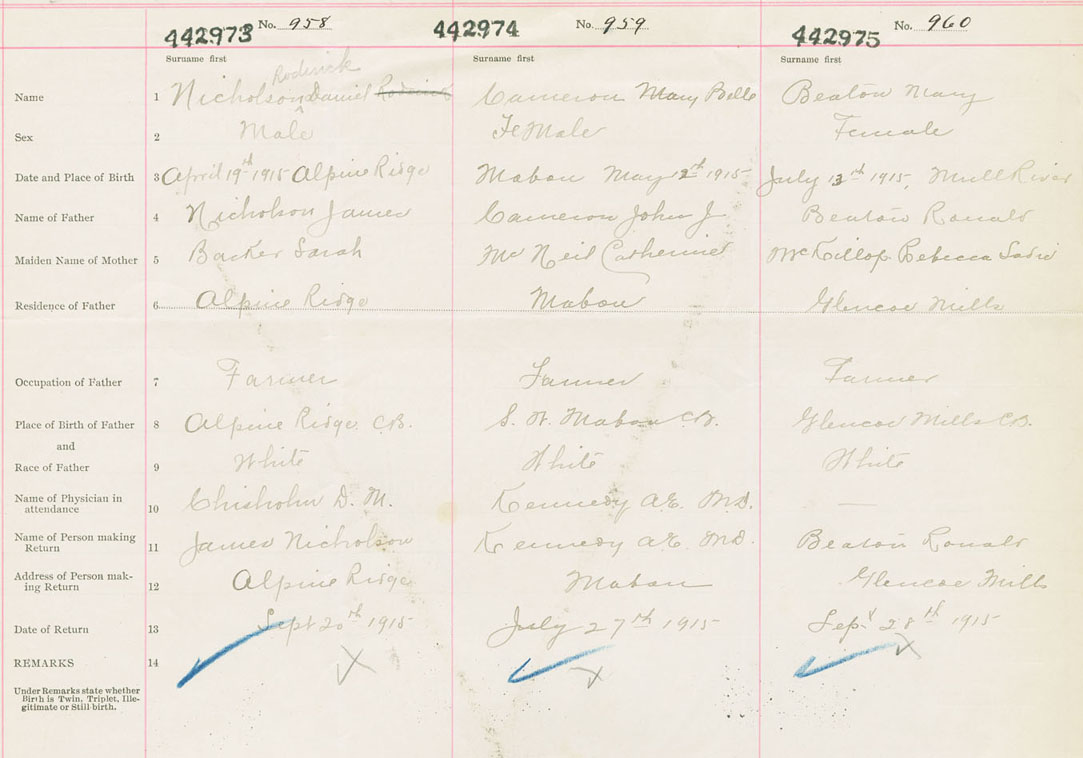 442973 No. 958 442974 No. 959 442975 No. 960
Surname first Surname first Surname first
Roderick
Name 1 Nicholson Daniel Roderick Cameron Mary Belle Beaton Mary
Sex 2 Male FeMale Female
Date and Place of Birth 3 April 19th 1915 Alpine Ridge Mabou May 12th 1915 July 13th 1915, Mull River
Name of Father 4 Nicholson James Cameron John J Beaton Ronald
Maiden Name of Mother 5 Barker Sarah McNeil Catherine McKillop Rebecca Sadie
Residence of Father 6 Alpine Ridge Mabou Glencoe Mills
Occupation of Father 7 Farmer Farmer Farmer
Place of Birth of Father 8 Alpine Ridge C.B. S. W. Mabou C.B. Glencoe Mills C.B.
and
Race of Father 9 White White White
Name of Physician in
attendance 10 Chisholm D. M. Kennedy A.E. M.D. —
Name of Person making
Return 11 James Nicholson Kennedy A.E. M.D. Beaton Ronald
Address of Person mak-
ing Return 12 Alpine Ridge Mabou Glencoe Mills
Date of Return 13 Sept 20th 1915 July 27th 1915 Sept 28th 1915
REMARKS 14 X X X
Under Remarks state whether
Birth is Twin, Triplet, Ille-
gitimate or Still-birth.